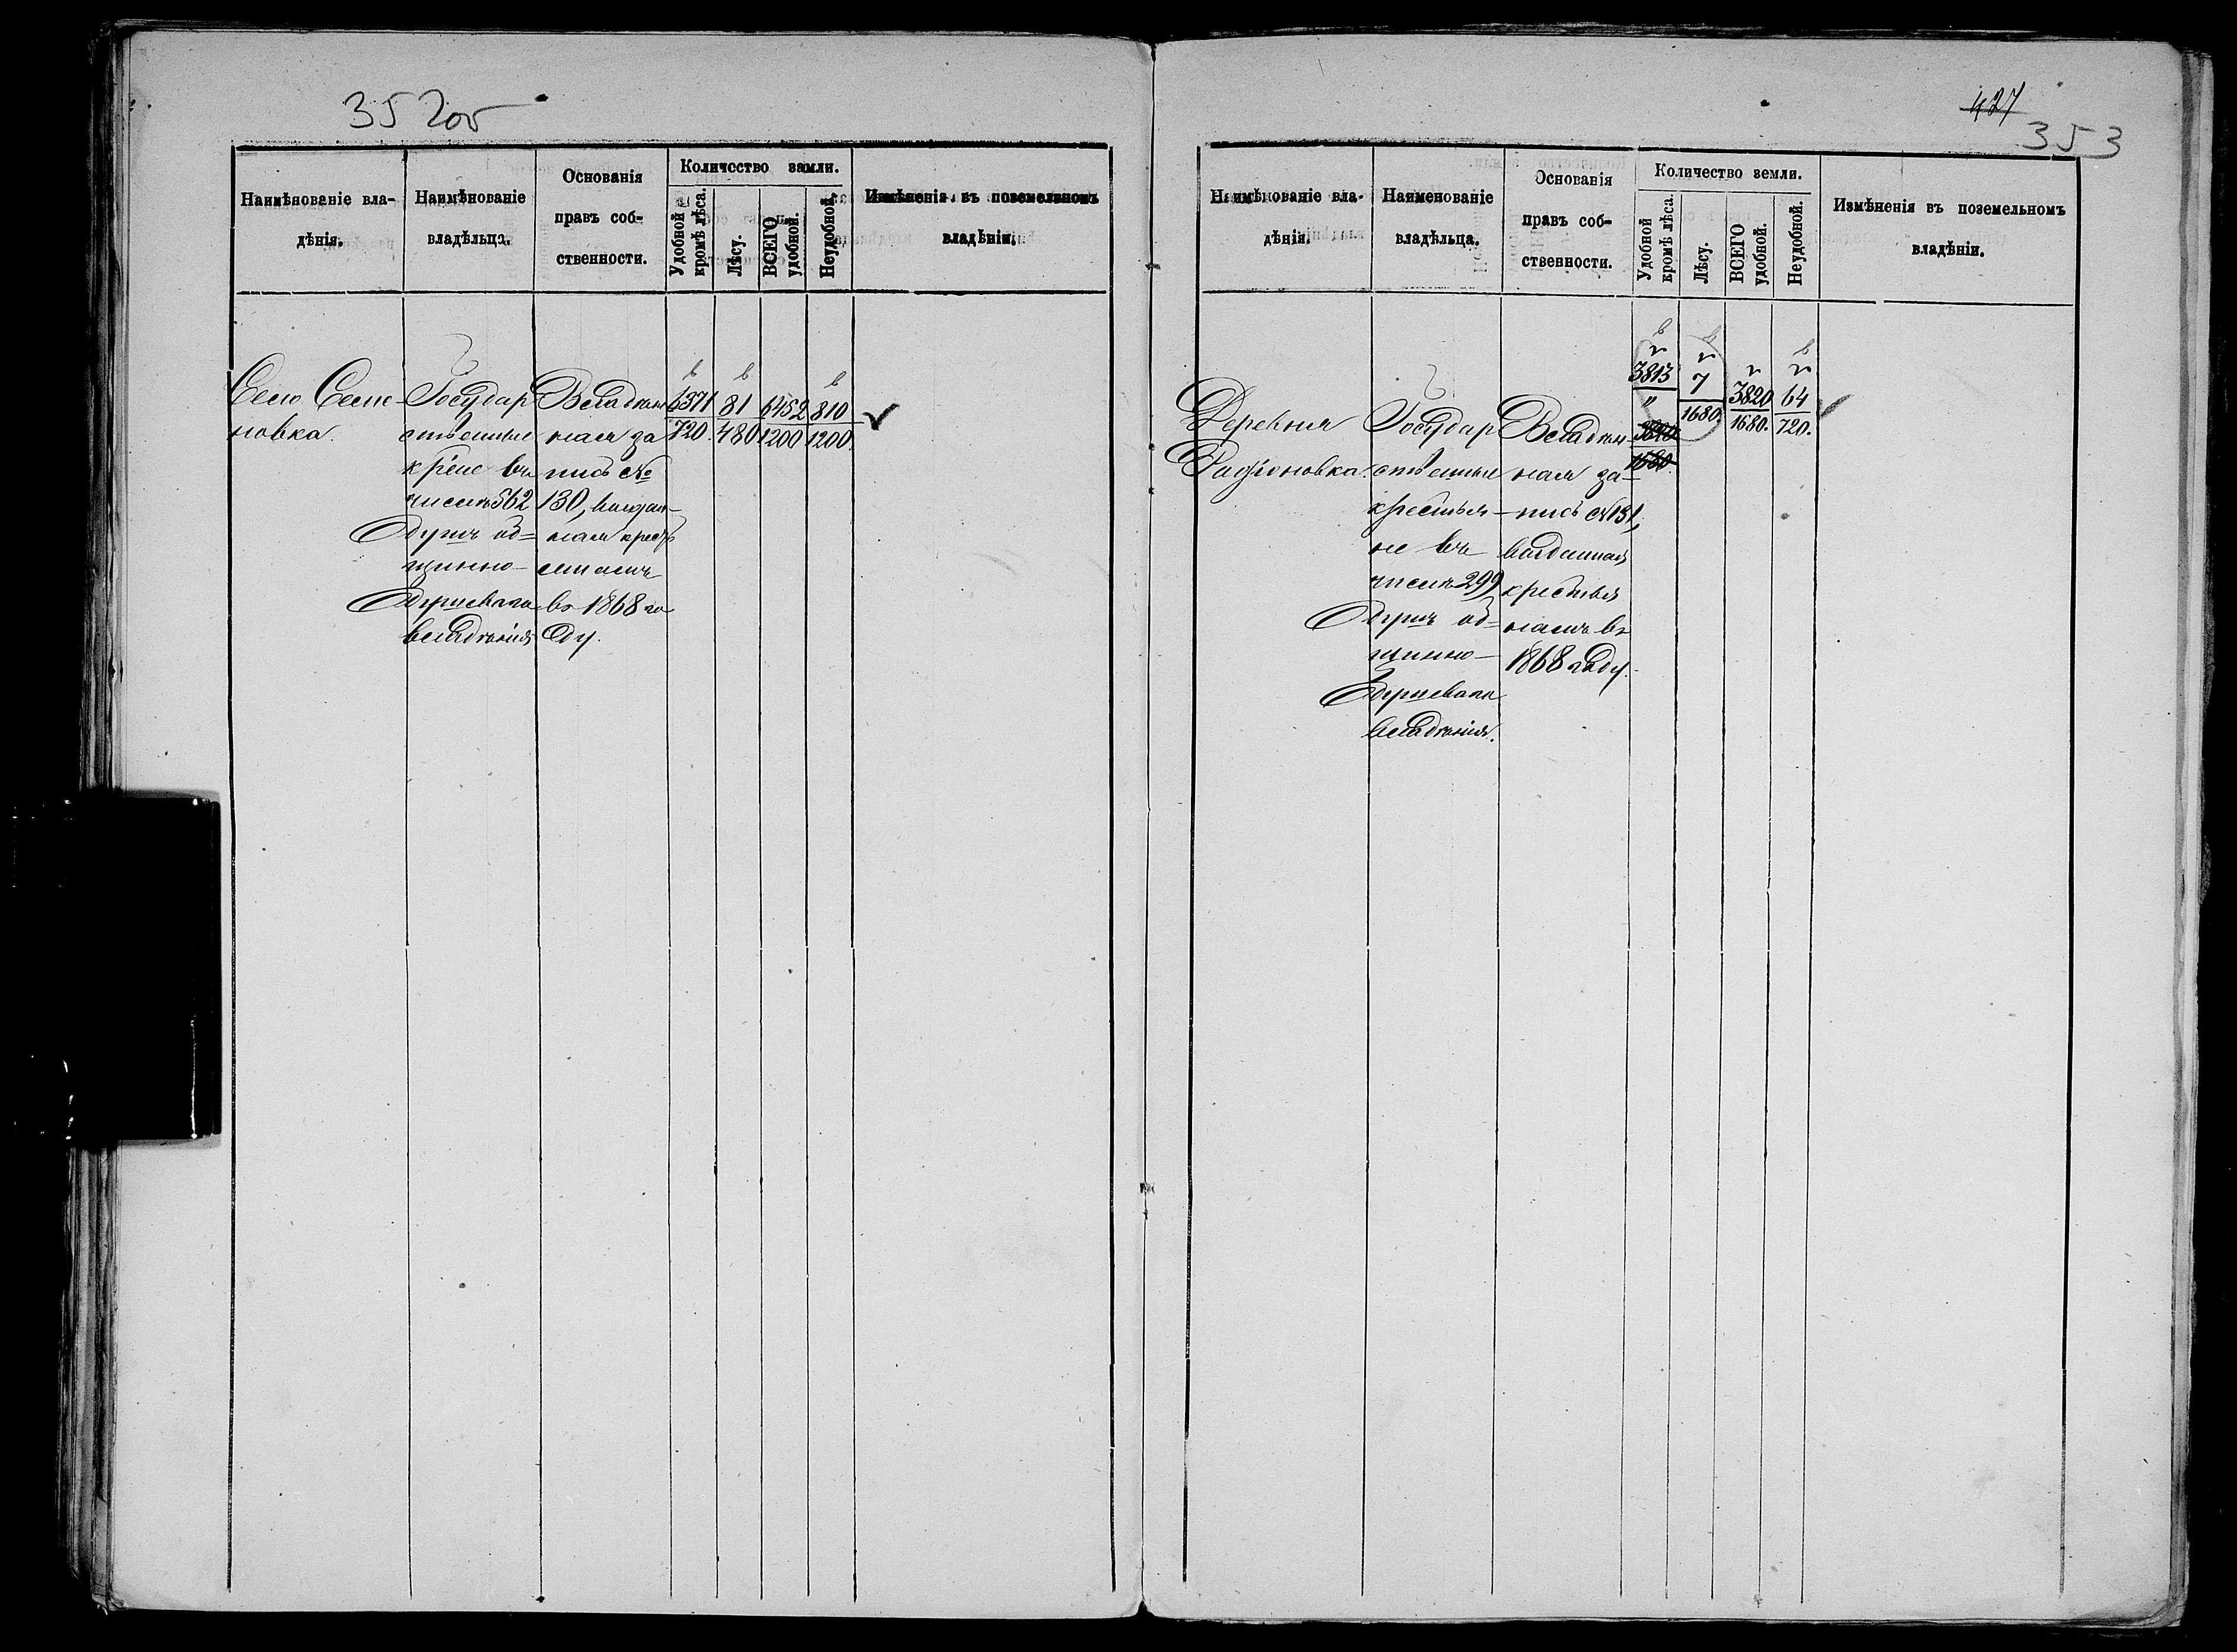 352об
Наимѣнованіе вла-
дѣнія.
Наимѣнованіе
владѣльца.
Основанія
правъ соб-
ственности.
Количество земли.
Удобной
кромѣ лѣса.
Лѣсу.
ВСЕГО
удобной.
Неудобной.
Измѣненія въ поземельномъ
владѣніи.
Село Семе-
новка.
Государ
ственные
крѣпе въ
числѣ 562
душъ об=
щинно-
душеваго
владѣнія
Владѣн
ная за
пись №
130, выдан-
ная кресть
янамъ
въ 1868 го
ду.
6371
720.
81
480
6452
1200
810
1200.
427
353
Наимѣнованіе вла-
дѣнія.
Наименованіе
владѣльца.
Основанія
правъ соб-
ственности.
Количество земли.
Удобной
кромѣ лѣса.
Лѣсу.
ВСЕГО
удобной.
Неудобной.
Измѣненія въ поземельномъ
владѣніи.
Деревня
Радіоновка.
Государ
ственные
крестья-
не въ
числѣ 299
душъ об=
щинно-
душеваго
владѣнія.
Владѣн-
ная за-
пись №131,
выданная
крестья
намъ въ
1868 году.
3813
"
3820
1680.
7
1680.
3820
1680.
64
720.